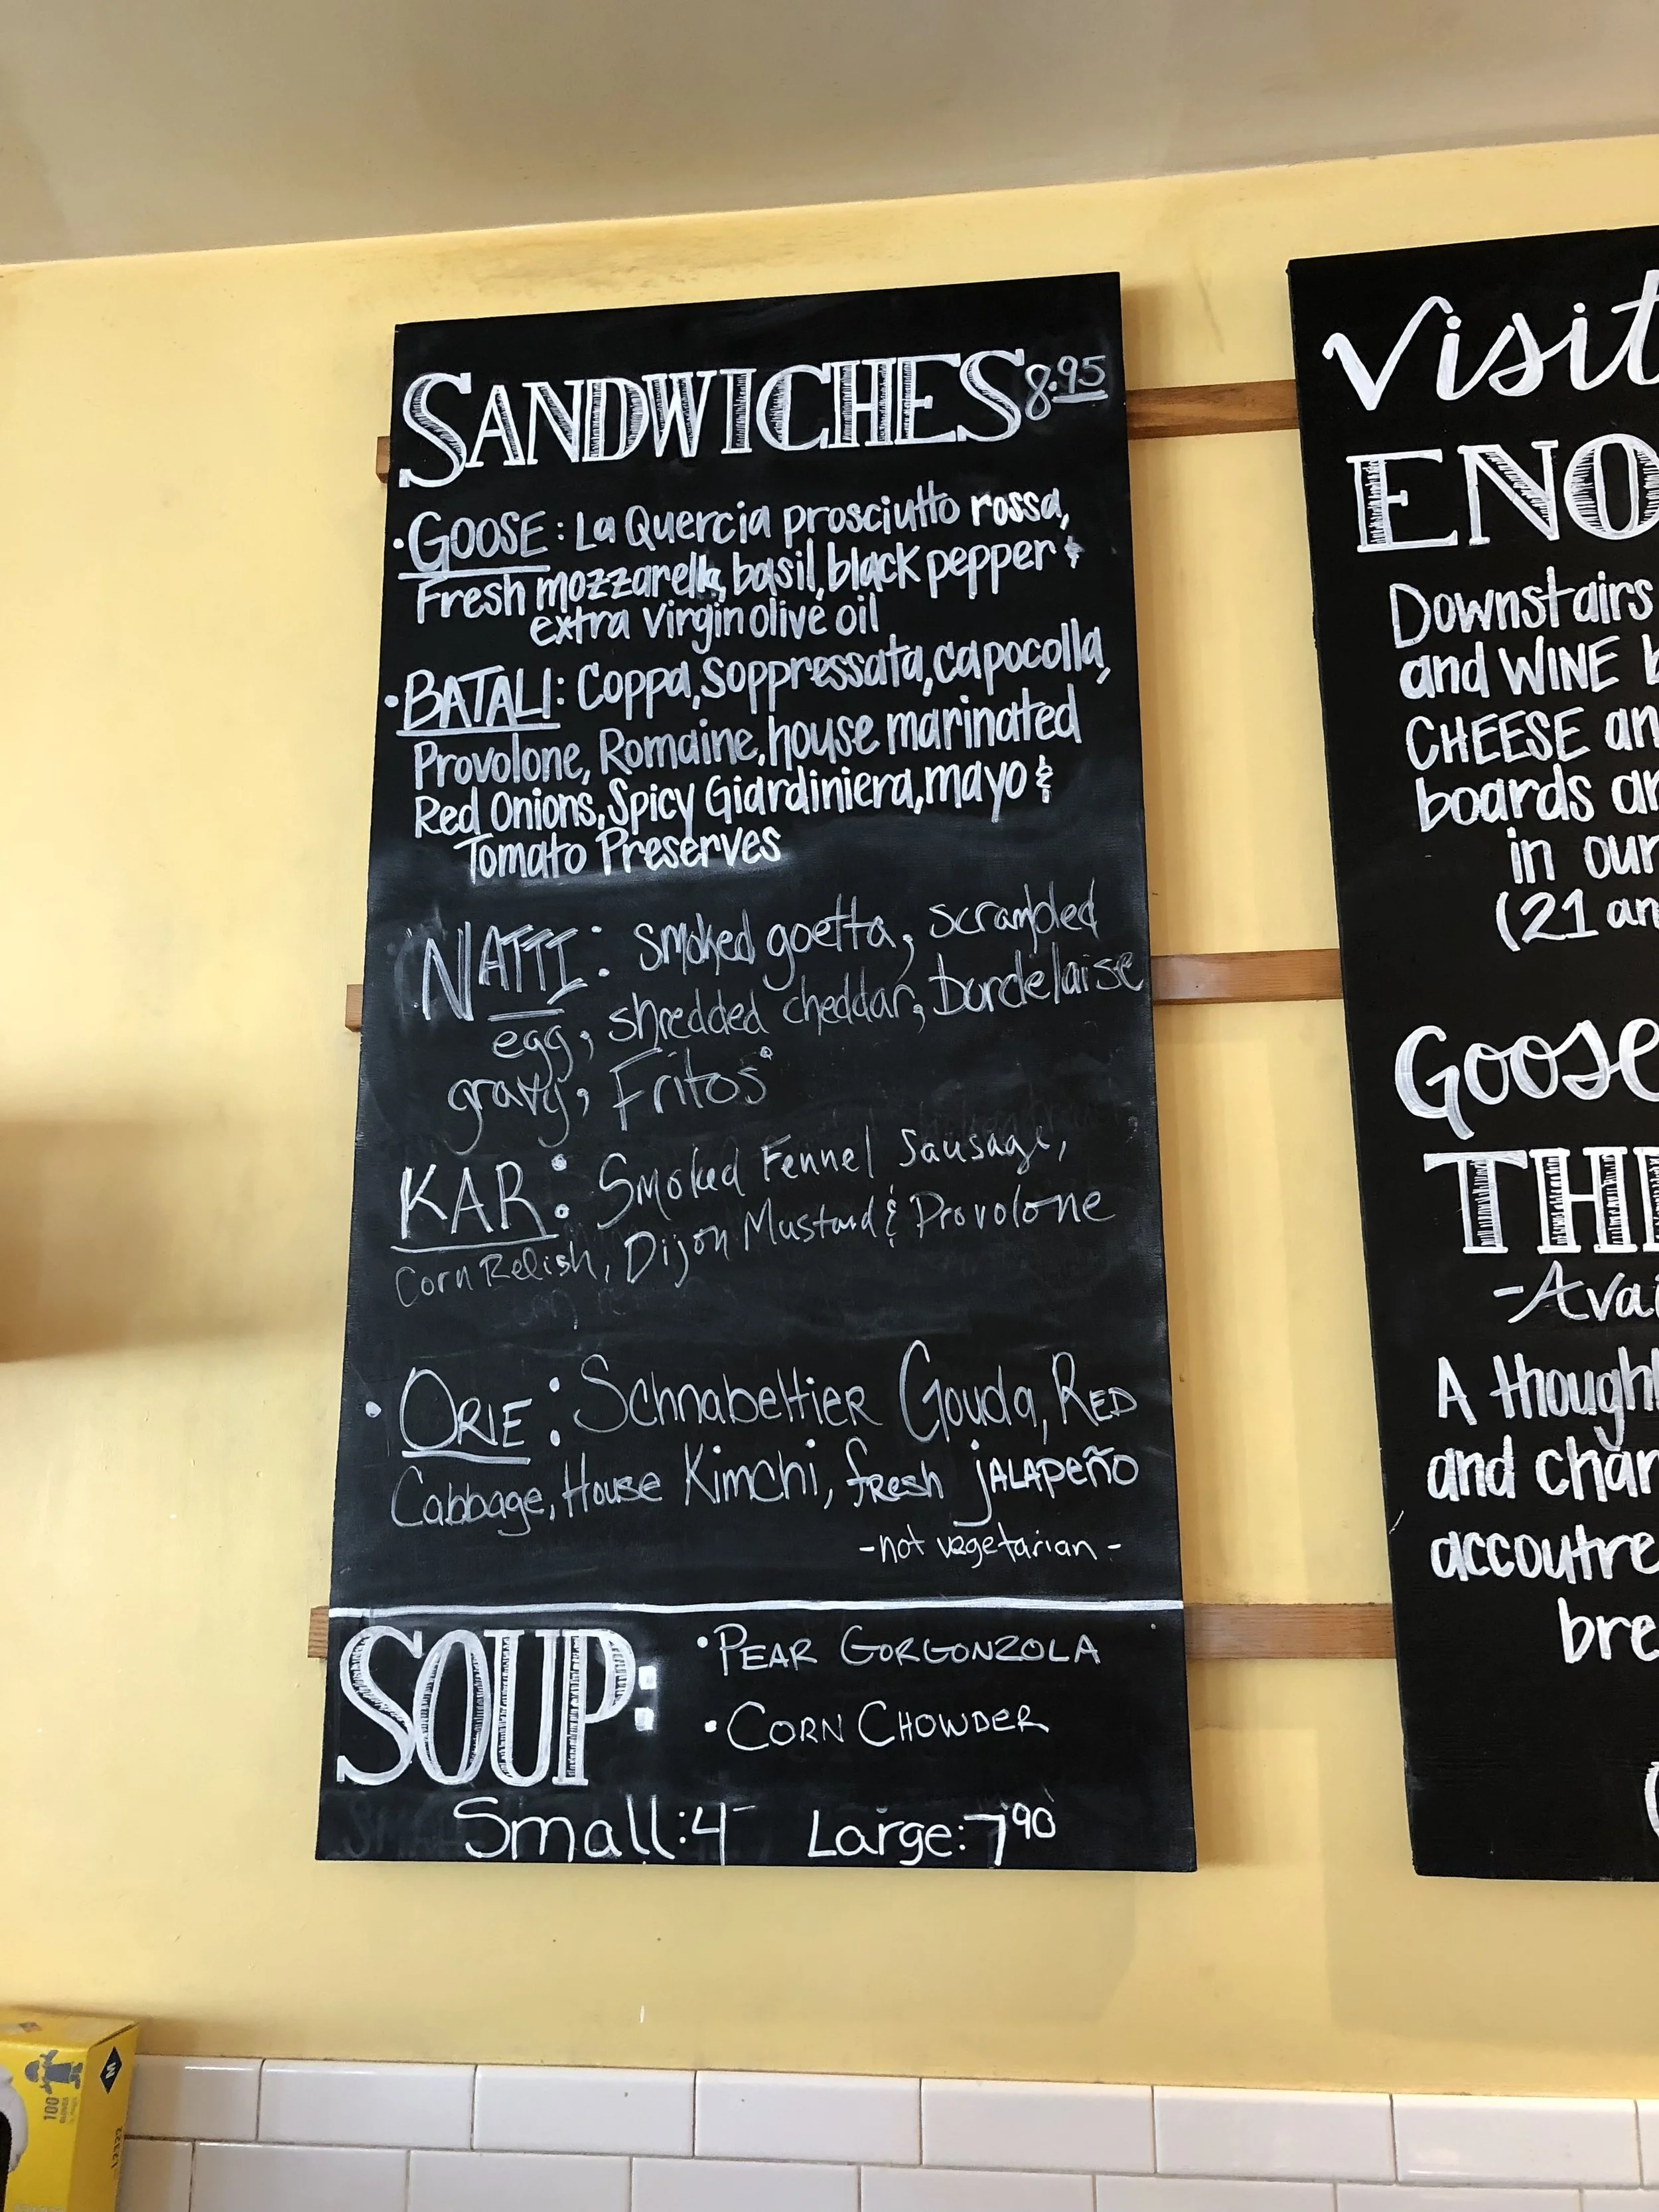 SANDWICHES 8.95
• GOOSE: La Quercia prosciutto rossa,
Fresh mozzarella, basil, black pepper &
extra virgin olive oil
• BATALI: Coppa, Soppressata, capocolla,
Provolone, Romaine, house marinated
Red Onions, Spicy Giardiniera, mayo &
Tomato Preserves
NATTI: smoked goetta, scrambled
egg, shredded cheddar, Durdelaise
gravy, Fritos
KAR: Smoked Fennel Sausage,
Corn Relish, Dijon Mustard & Provolone
• ORIE: Schnabeltier Gouda, RED
Cabbage, House Kimchi, fresh jALAPeño
-not vegetarian-
SOUP:
• PEAR GORGONZOLA
• CORN CHOWDER
Small: 4- Large: 7 90
Visit
ENO
Downstairs
and WINE b
CHEESE an
boards an
in our
(21 an
Goose
THE
-Avai
A though
and char
accoutre
bre
M
100